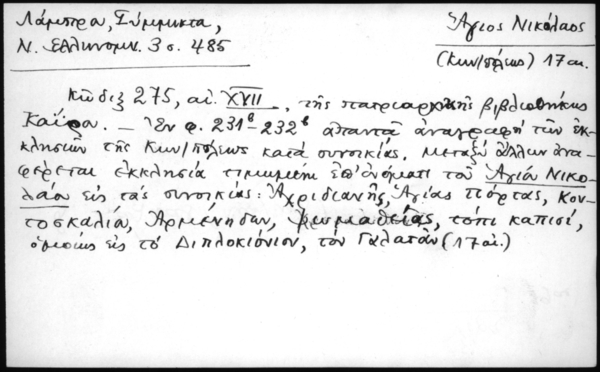 Λάμπρου, Σύμμικτα,
Ν. Ελληνομν. 3 σ. 485
Ἅγιος Νικόλαος
(Κων/πόλεως) 17 αι.
Κῶδιξ 275, αἰ. XVII, τῆς πατριαρχικῆς βιβλιοθήκης
Καΐρου. — Ἐν φ. 231β–232β ἀπαντᾶ ἀναγραφή τῶν ἐκ-
κλησιῶν τῆς Κων/πόλεως κατά συνοικίας. Μεταξύ ἄλλων ἀνα-
φέρεται ἐκκλησία τιμωμένη ἐπ' ὀνόματι τοῦ Ἁγίου Νικο-
λάου εἰς τάς συνοικίας: Ἀχριδιανῆς, Ἁγίας Πόρτας, Κον-
τοσκαλίου, Ἀρμένηδων, Ψωμαθείας, τόπι καπισί,
ὁμοίως εἰς τό Διπλοκιόνιον, τόν Γαλατᾶν (17 αἰ.)